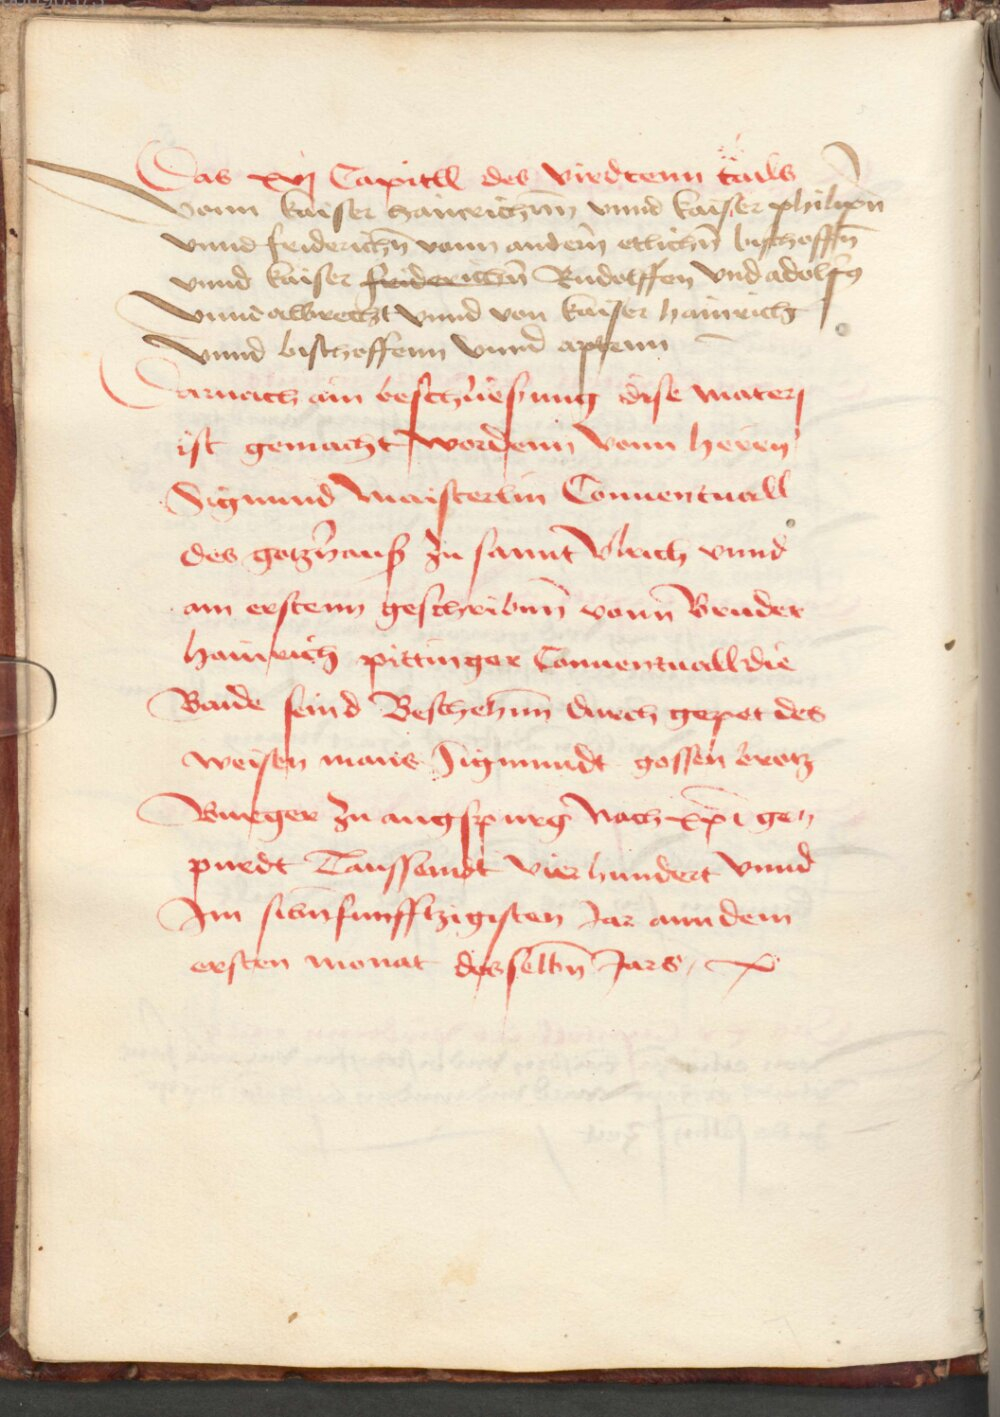 Das xvj Capitell des virdtenn tails
Vonn kaiser hainrichnn vnnd kaiser philippn̄
vnnd friderichn̄ vonn andern̄ etlichn̄ bischoffn̄
vnnd kaiser friderichn̄ Rudolffen vnd adolfs
Vnnd albrecht vnnd von kaiser hainrich
Vnnd bischoffenn Vnnd aptenn
Darnach ain beschliessung dise materj
ist gemacht wordenn vonn heren
Sigmund Maisterlin Conuentuall
des gotzhauß zu sannt Vlrich vnnd
am erstenn geschribnn̄ vonn Bruder
hainrich pittinger Conuentuall die
Baide seind Beschehnn̄ durch gepot des
weisen mans Sigmundt gossenbrotz
Burger zu augspurg Nach xp̄i ge⸗
puedt Taussendt Vierhundert Vnnd
Im sibn̄funfftzigisten Jar ann dem
ersten monat desselbn̄ Jars